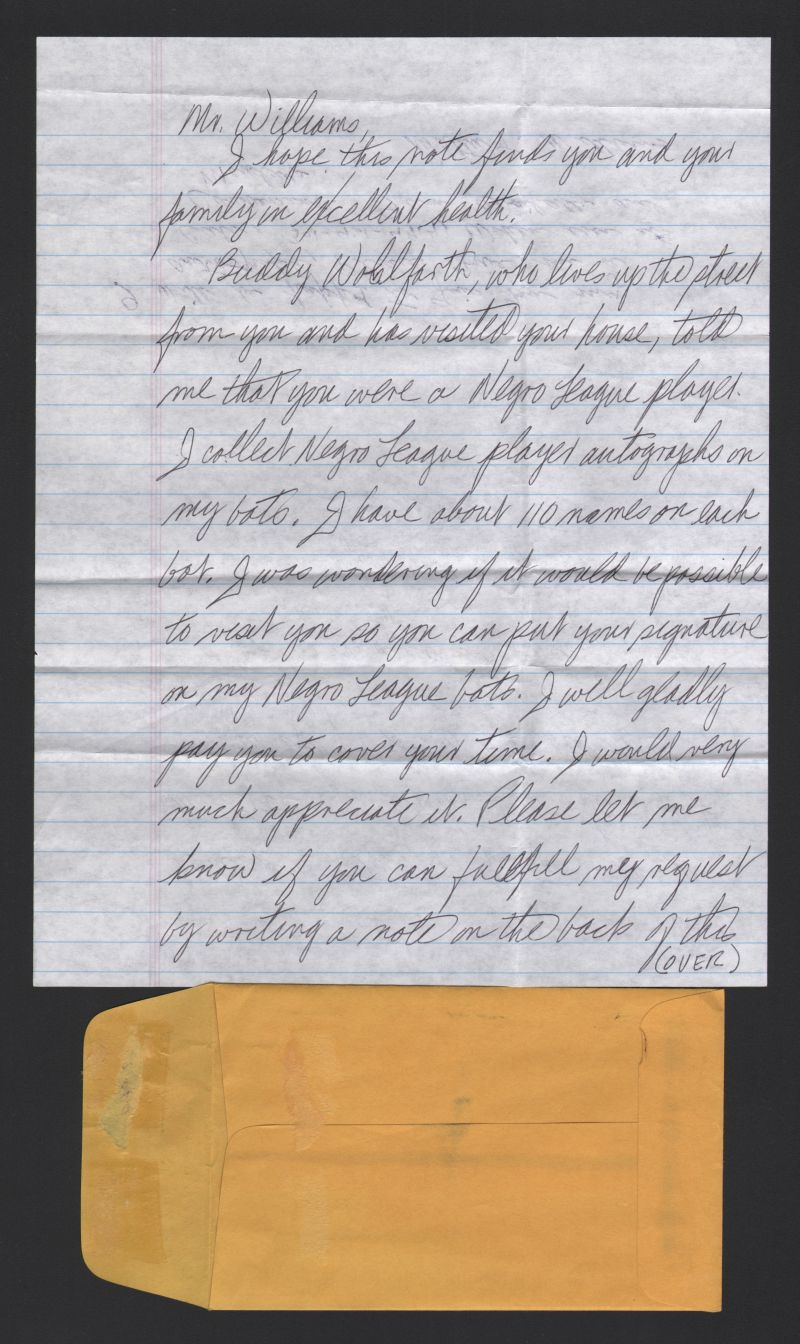 Mr. Williams,
I hope this note finds you and your
family in excellent health.
Buddy Wohlfarth, who lives up the street
from you and has visited your house, told
me that you were a Negro League player.
I collect Negro League player autographs on
my bats. I have about 110 names on each
bat. I was wondering if it would be possible
to visit you so you can put your signature
on my Negro League bats. I will gladly
pay you to cover your time. I would very
much appreciate it. Please let me
know if you can fullfill my request
by writing a note on the back of this
(OVER)